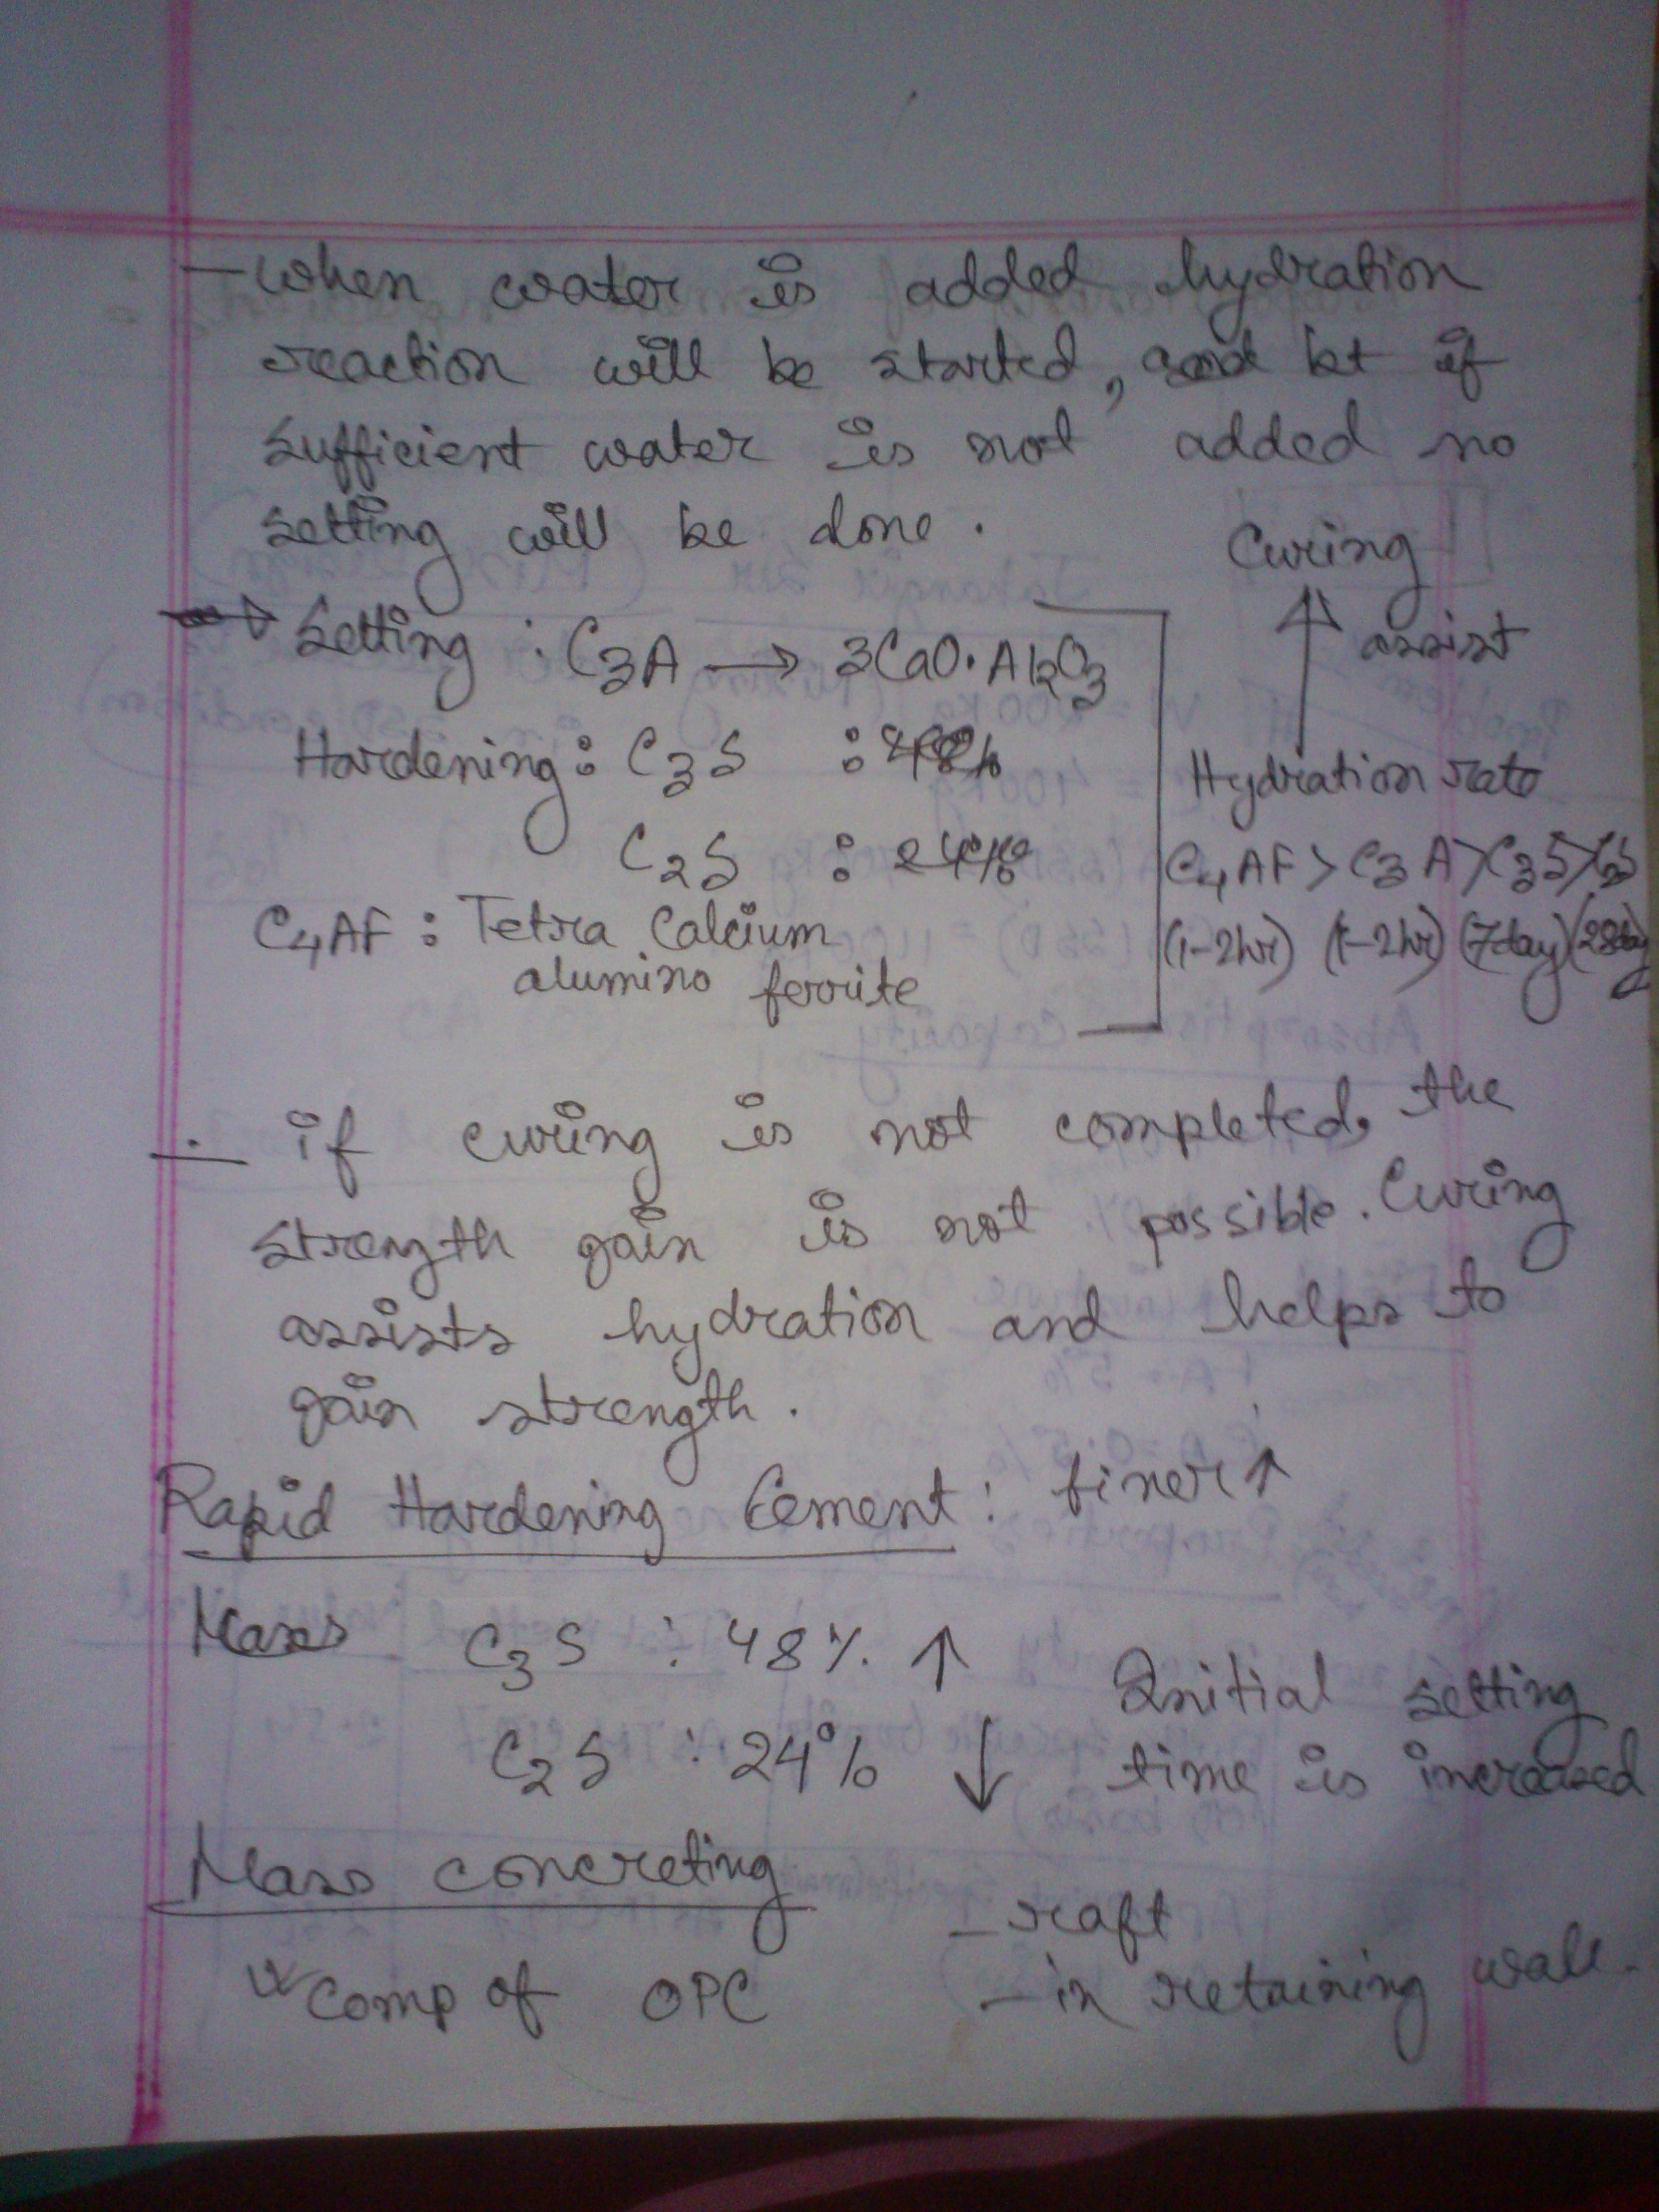 - When water is added hydration
reaction will be started, and bt if
sufficient water is not added no
setting will be done.
Curing
↑ assist
Setting : C3A → 3CaO·Al2O3
Hardening : C3S : 48%
Hydration rate
C2S : 24%
C4AF > C3A > C3S > C2S
C4AF : Tetra Calcium
alumino ferrite
(1-2hr) (1-2hr) (7day) (28day)
- if curing is not completed, the
strength gain is not possible. Curing
assists hydration and helps to
gain strength.
Rapid Hardening Cement : finer ↑
Mass C3S : 48% ↑
C2S : 24% ↓
Initial setting
time is increased
Mass concreting
- raft
Comp of OPC
- in retaining wall.